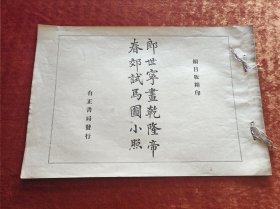 郎世寧畫乾隆帝
春郊試馬圖小照
有正書局發行